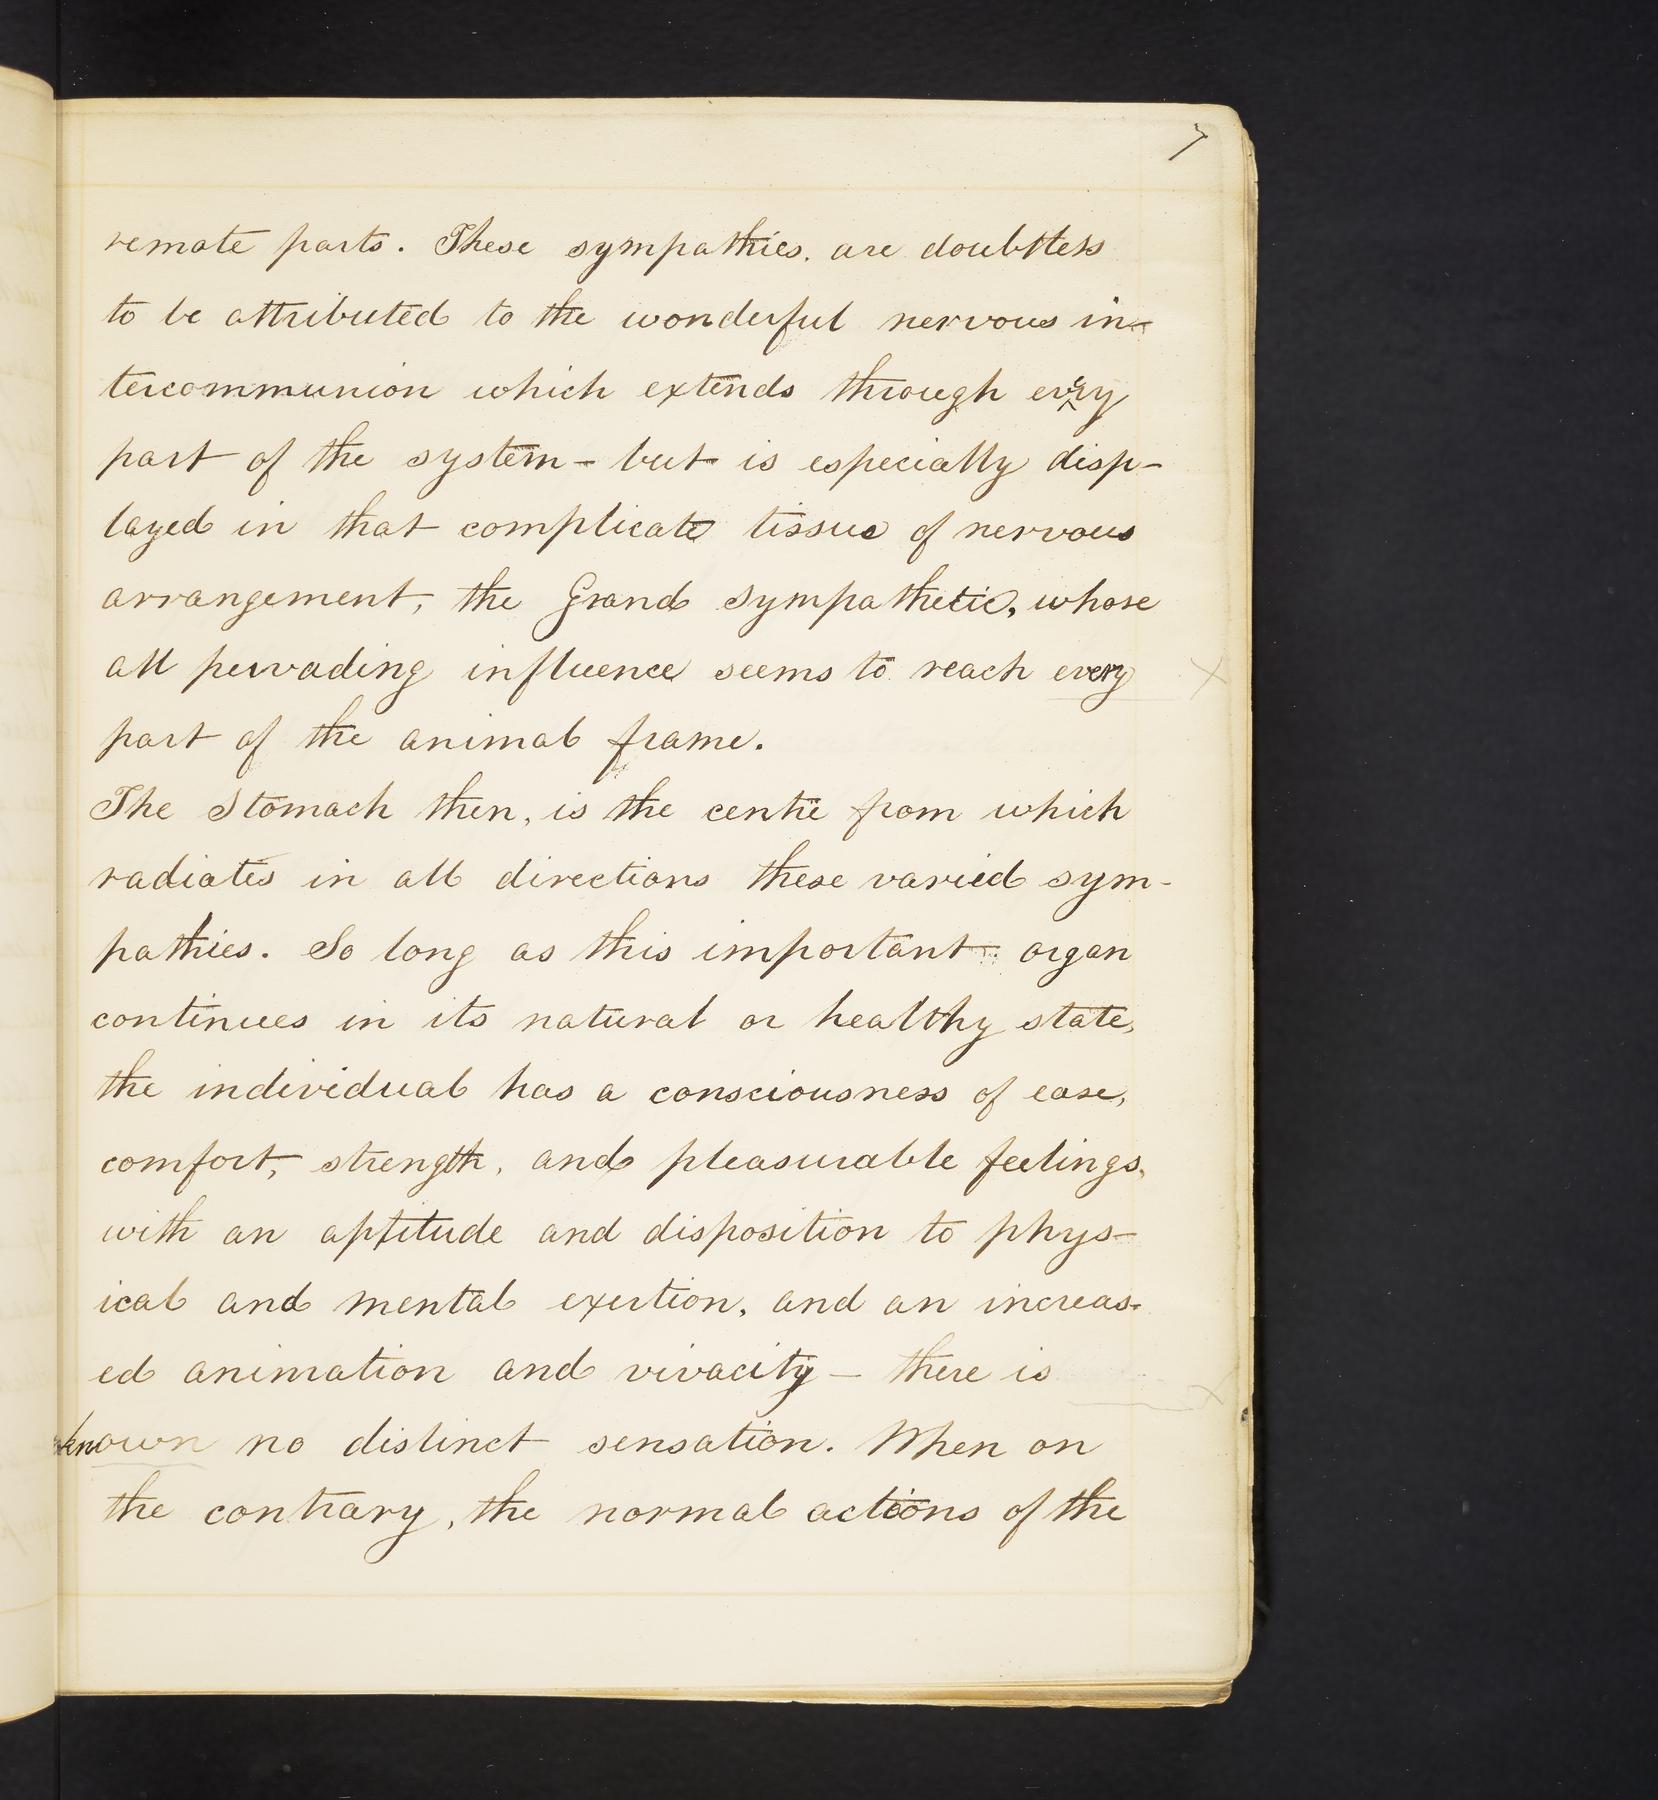 7
remote parts. These sympathies, are doubtless
to be attributed to the wonderful nervous in-
tercommunion which extends through every
part of the system - but is especially disp-
layed in that complicate tissue of nervous
arrangement, the Grand Sympathetic, whose
all pervading influence seems to reach every
part of the animal frame.
The Stomach then, is the centre from which
radiates in all directions these varied sym-
pathies. So long as this important organ
continues in its natural or healthy state,
the individual has a consciousness of ease,
comfort, strength, and pleasurable feelings,
with an aptitude and disposition to phys-
ical and mental exertion, and an increas-
ed animation and vivacity - there is
known no distinct sensation. When on
the contrary, the normal actions of the